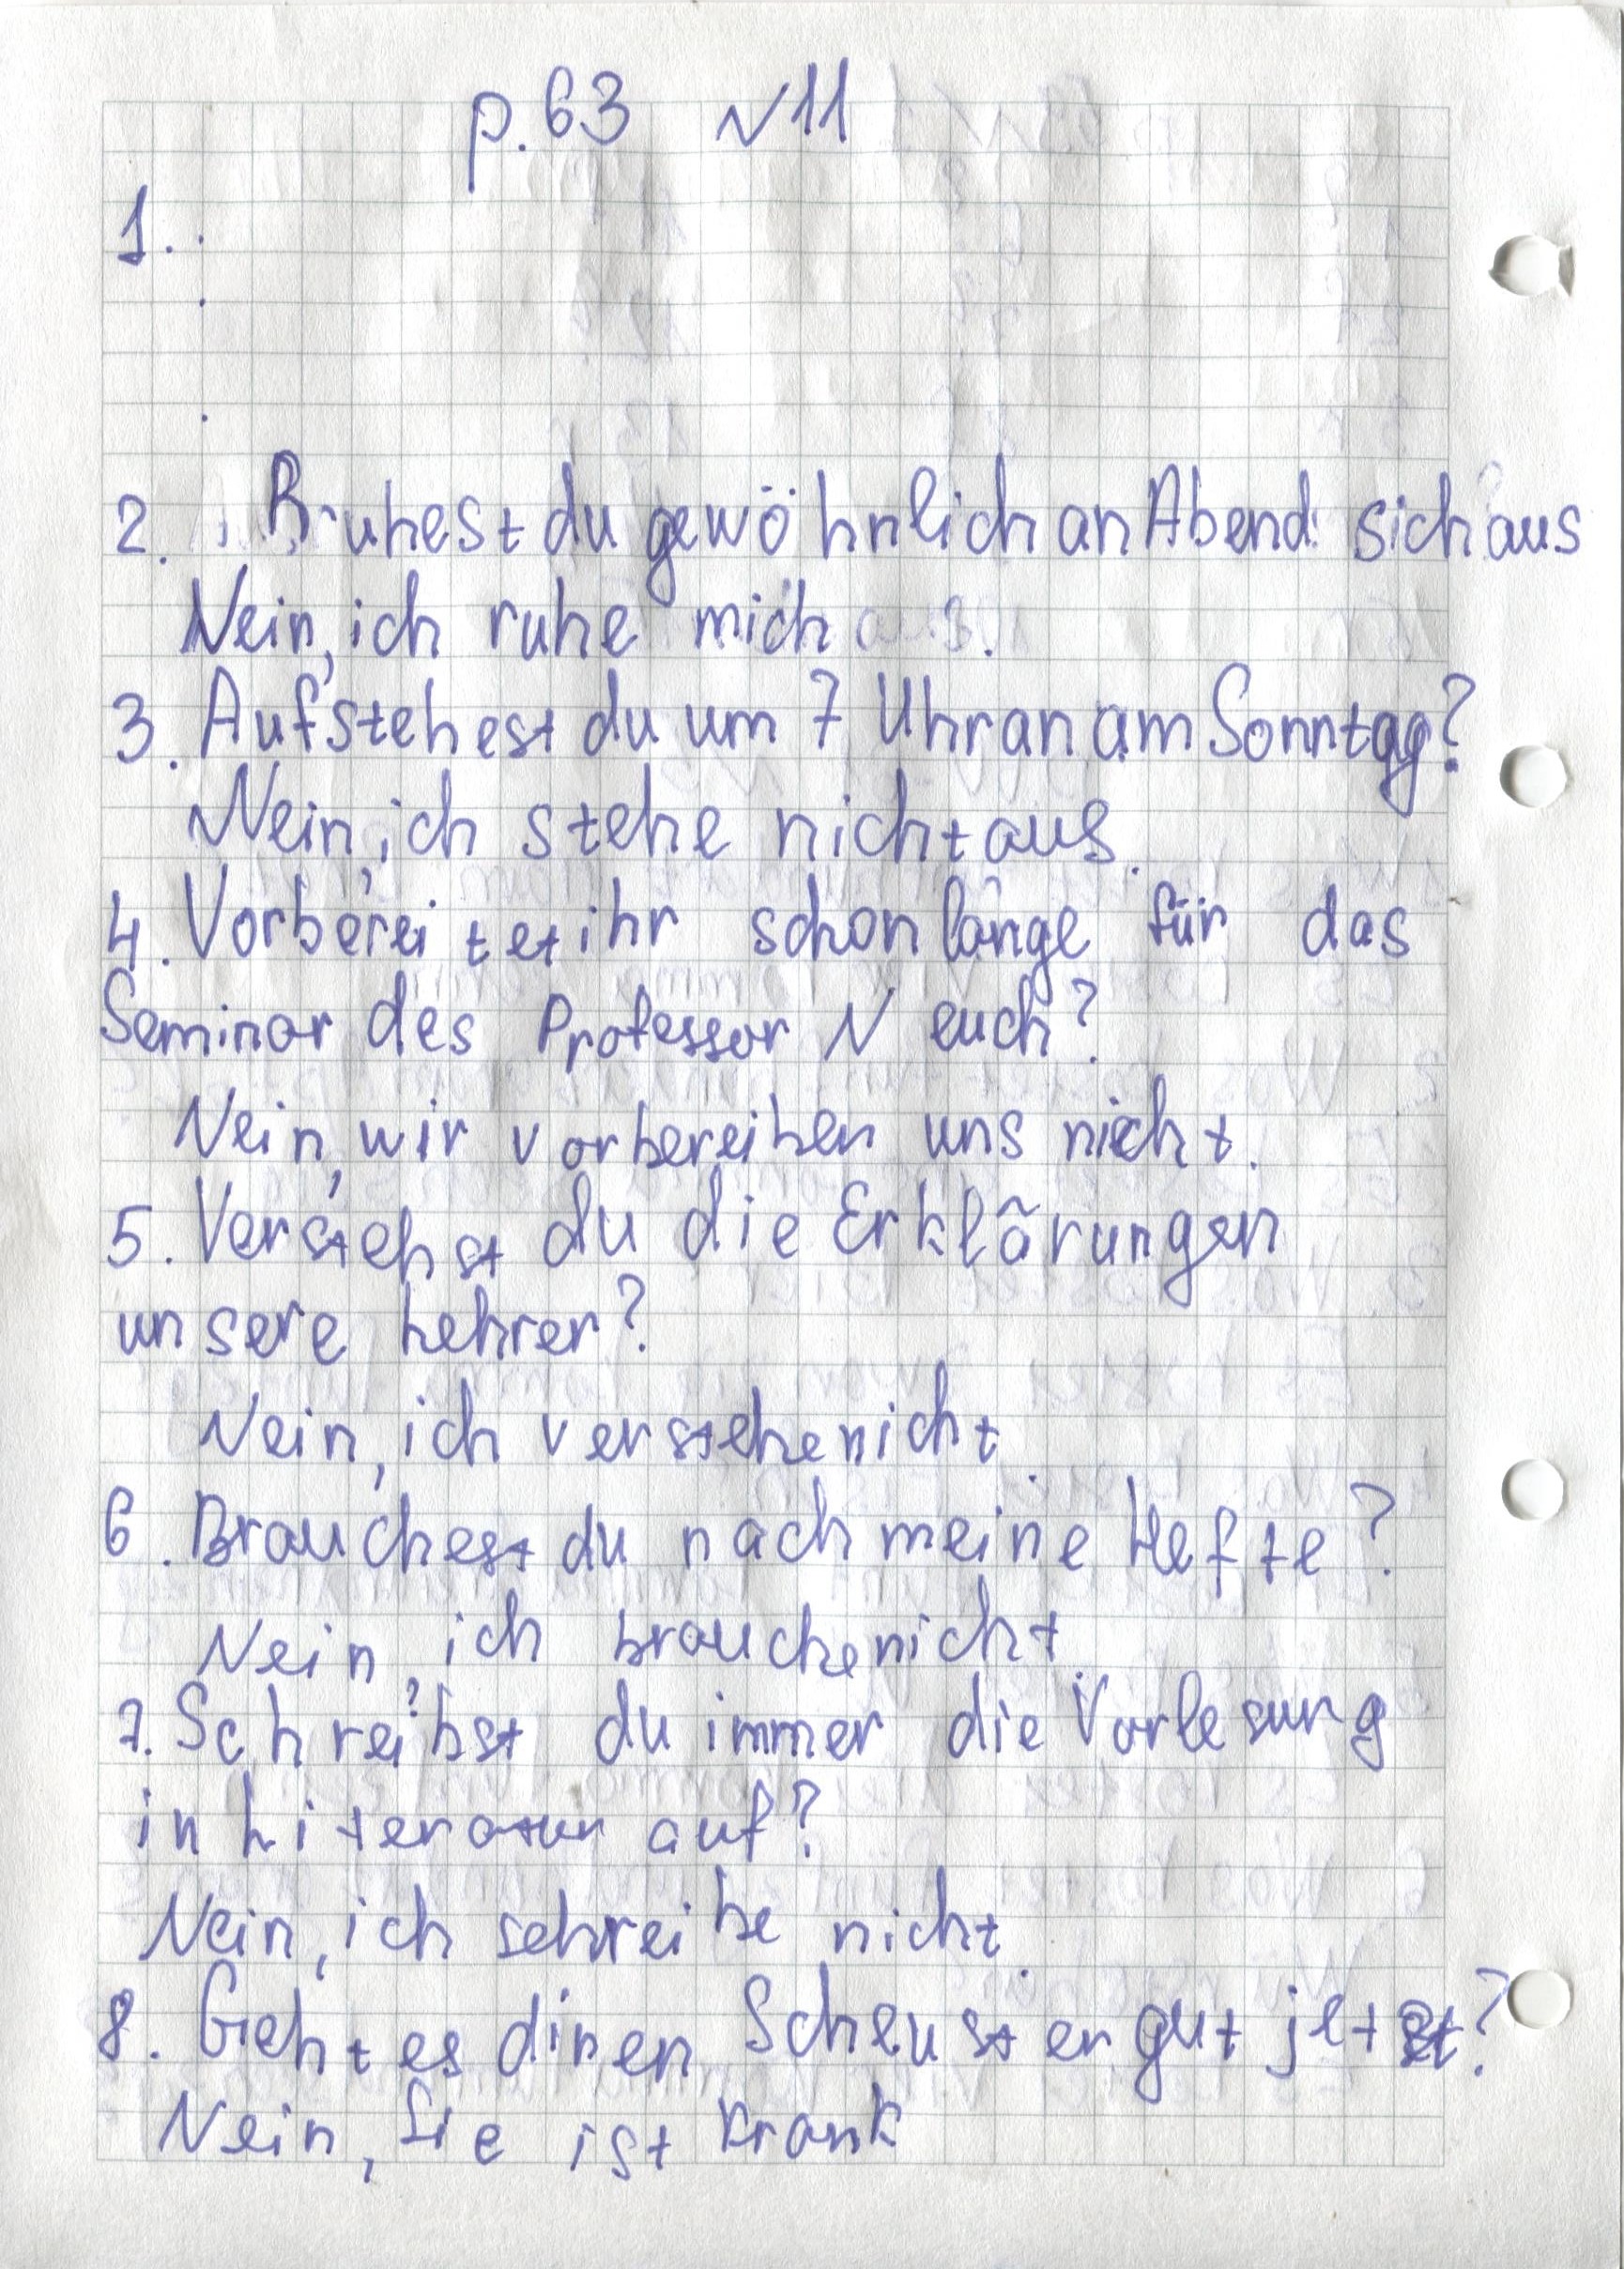 p. 63 №11
1.
2. Ruhest du gewöhnlich an Abend sich aus
Nein, ich ruhe mich aus.
3. Aufstehest du um 7 Uhr an am Sonntag?
Nein, ich stehe nicht aus.
4. Vorbereitet ihr schon lange für das
Seminar des Professor N euch?
Nein, wir vorbereiten uns nicht.
5. Verstehst du die Erklärungen
unsere Lehrer?
Nein, ich verstehe nicht.
6. Brauchest du nach meine Hefte?
Nein, ich brauche nicht.
7. Schreibst du immer die Vorlesung
in Literatur auf?
Nein, ich schreibe nicht.
8. Geht es dinen Scheuster gut jetzt?
Nein, Sie ist krank